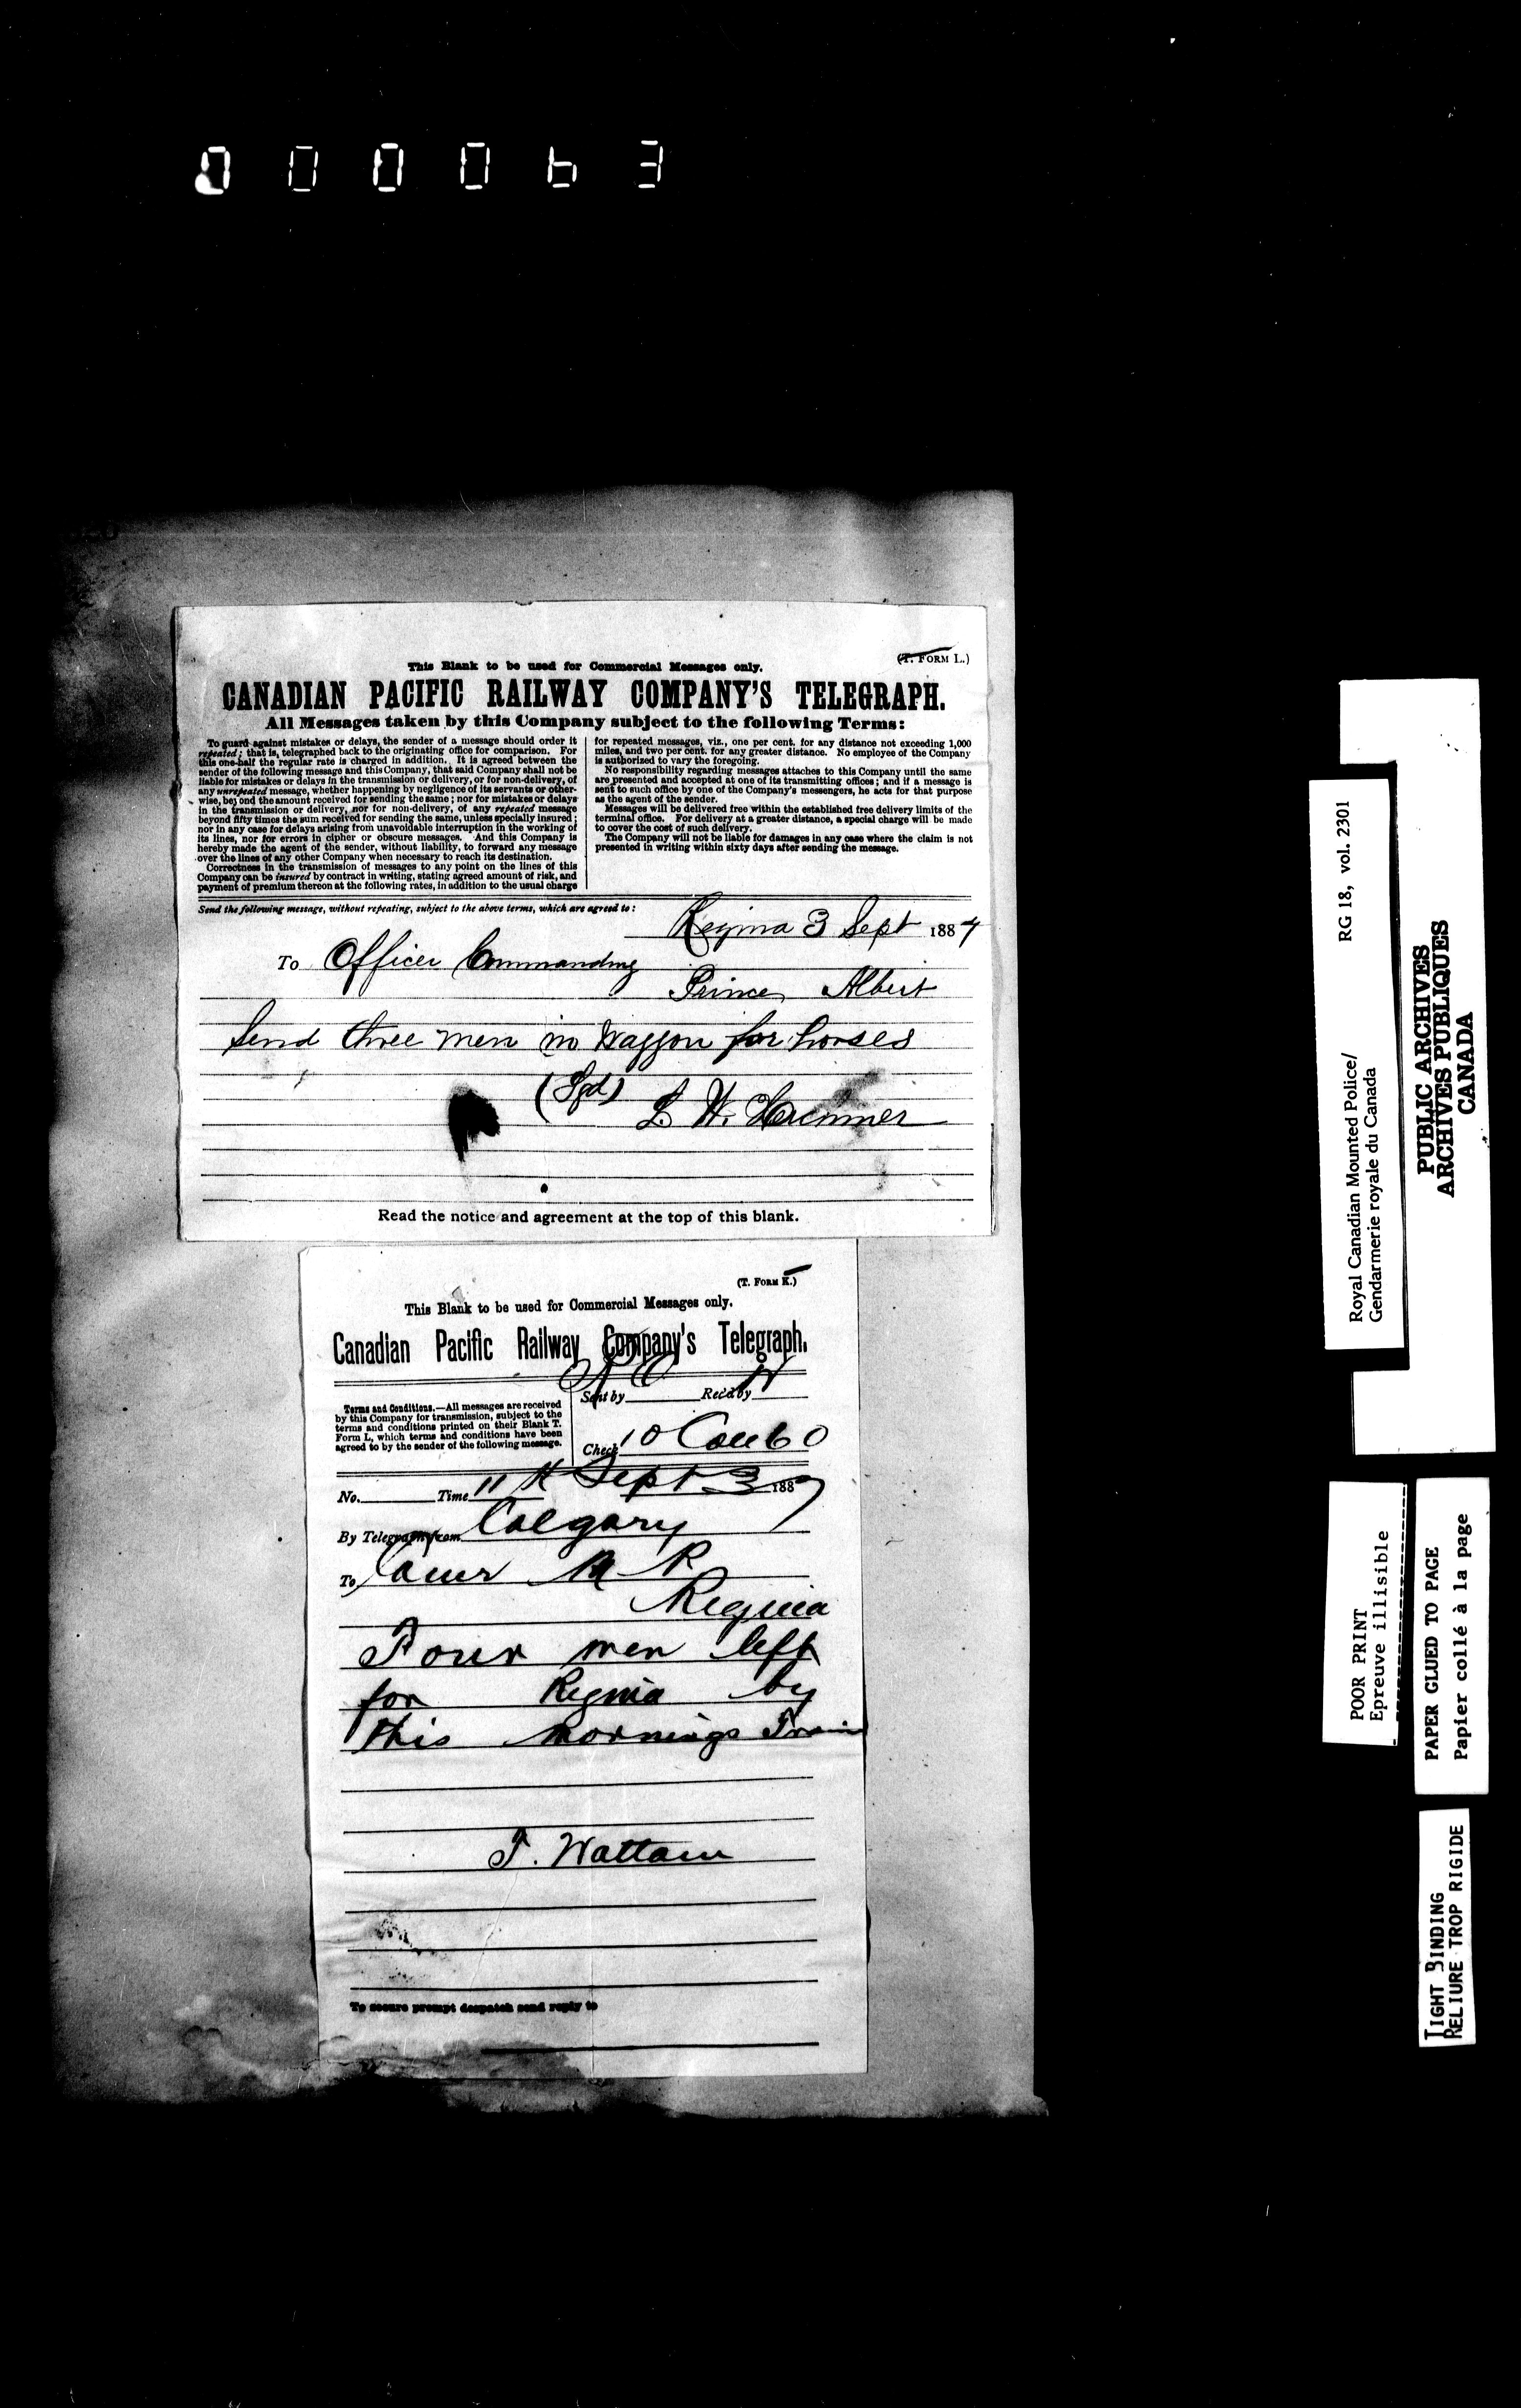 000063
(T. FORM L.)
This Blank to be used for Commercial Messages only.
CANADIAN PACIFIC RAILWAY COMPANY'S TELEGRAPH.
All Messages taken by this Company subject to the following Terms:
To guard against mistakes or delays, the sender of a message should order it
repeated; that is, telegraphed back to the originating office for comparison. For
this one-half the regular rate is charged in addition. It is agreed between the
sender of the following message and this Company, that said Company shall not be
liable for mistakes or delays in the transmission or delivery, or for non-delivery, of
any unrepeated message, whether happening by negligence of its servants or other-
wise, beyond the amount received for sending the same; nor for mistakes or delays
in the transmission or delivery, nor for non-delivery, of any repeated message
beyond fifty times the sum received for sending the same, unless specially insured;
nor in any case for delays arising from unavoidable interruption in the working of
its lines, nor for errors in cipher or obscure messages. And this Company is
hereby made the agent of the sender, without liability, to forward any message
over the lines of any other Company when necessary to reach its destination.
Correctness in the transmission of messages to any point on the lines of this
Company can be insured by contract in writing, stating agreed amount of risk, and
payment of premium thereon at the following rates, in addition to the usual charge
for repeated messages, viz., one per cent. for any distance not exceeding 1,000
miles, and two per cent. for any greater distance. No employee of the Company
is authorized to vary the foregoing.
No responsibility regarding messages attaches to this Company until the same
are presented and accepted at one of its transmitting offices; and if a message is
sent to such office by one of the Company's messengers, he acts for that purpose
as the agent of the sender.
Messages will be delivered free within the established free delivery limits of the
terminal office. For delivery at a greater distance, a special charge will be made
to cover the cost of such delivery.
The Company will not be liable for damages in any case where the claim is not
presented in writing within sixty days after sending the message.
Send the following message, without repeating, subject to the above terms, which are agreed to:
Regina 3 Sept 1887
To Officer Commanding
Prince Albert
Send three men in Waggon for horses
(Sgd) L. W. Herchmer
Read the notice and agreement at the top of this blank.
(T. FORM K.)
This Blank to be used for Commercial Messages only.
Canadian Pacific Railway Company's Telegraph.
Sent by Rec'd by
Terms and Conditions.—All messages are received
by this Company for transmission, subject to the
terms and conditions printed on their Blank T.
Form L, which terms and conditions have been
agreed to by the sender of the following message.
Check 10
No. Time 11 K Sept 3 1887
By Telegraph from Calgary
To Comr M P
Regina
Four men left
for Regina by
this mornings Train
T. Wattam
To secure prompt despatch send reply to
Royal Canadian Mounted Police/ RG 18, vol. 2301
Gendarmerie royale du Canada
PUBLIC ARCHIVES
ARCHIVES PUBLIQUES
CANADA
POOR PRINT
Epreuve illisible
PAPER GLUED TO PAGE
Papier collé à la page
TIGHT BINDING
RELIURE TROP RIGIDE